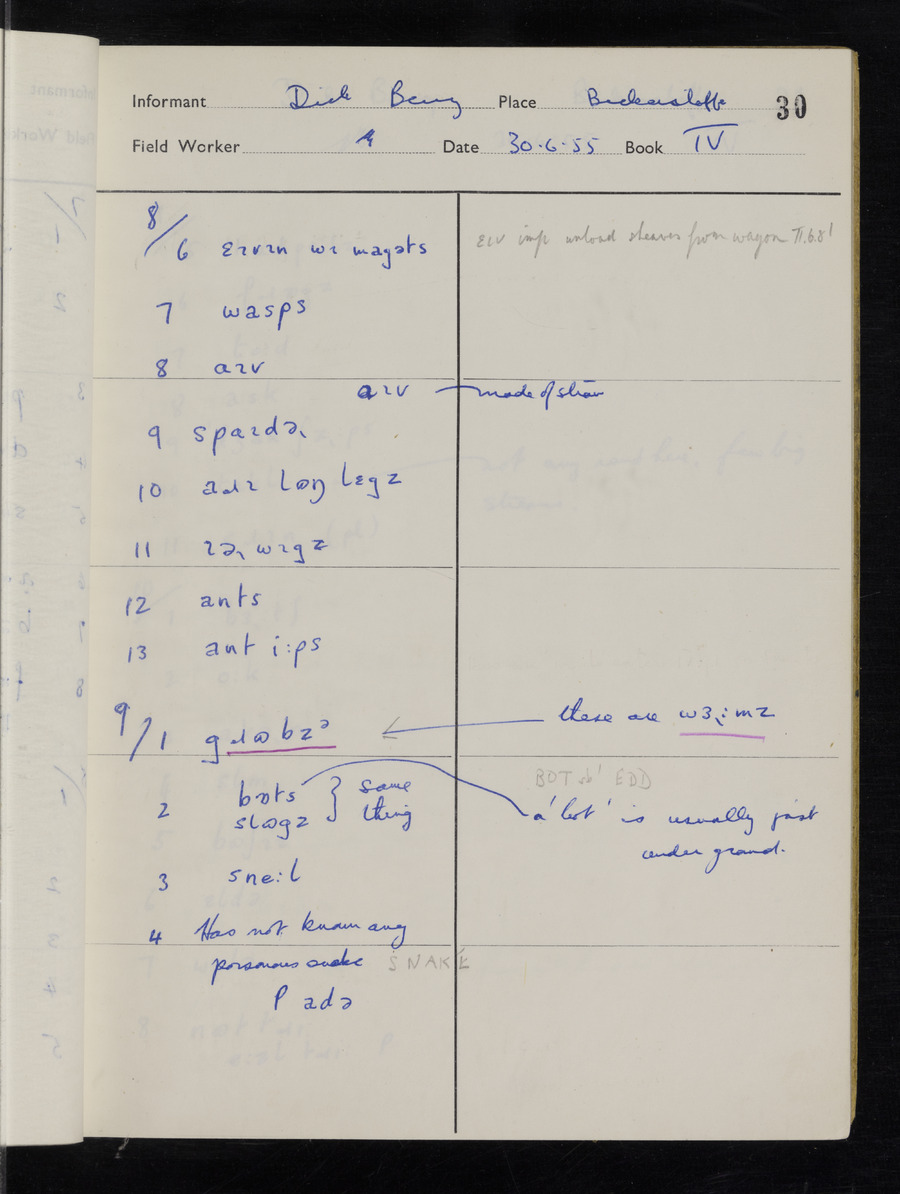 Informant Dick Berry Place Bickerstaffe 30
Field Worker Date 30.6.55 Book IV
8/6 ɛɪvɪn wɪ magəts
ɛɪv imp unload sheaves from wagon II.6.8!
7 wasps
8 aɪv
aɪv made of straw
9 spaɪdə˞
10 adɹɪ lɒŋ lɛgz
11 ɪə˞wɪgz
12 ants
13 ant i:ps
9/1 gɹɷbzᵊ
these are wɜ˞:mz
2 bɒts } same
slɷgz thing
BOT sb¹ EDD
a 'bot' is usually just
under ground.
3 sne:l
4 Has not known any
poisonous snake SNAKE
P adə